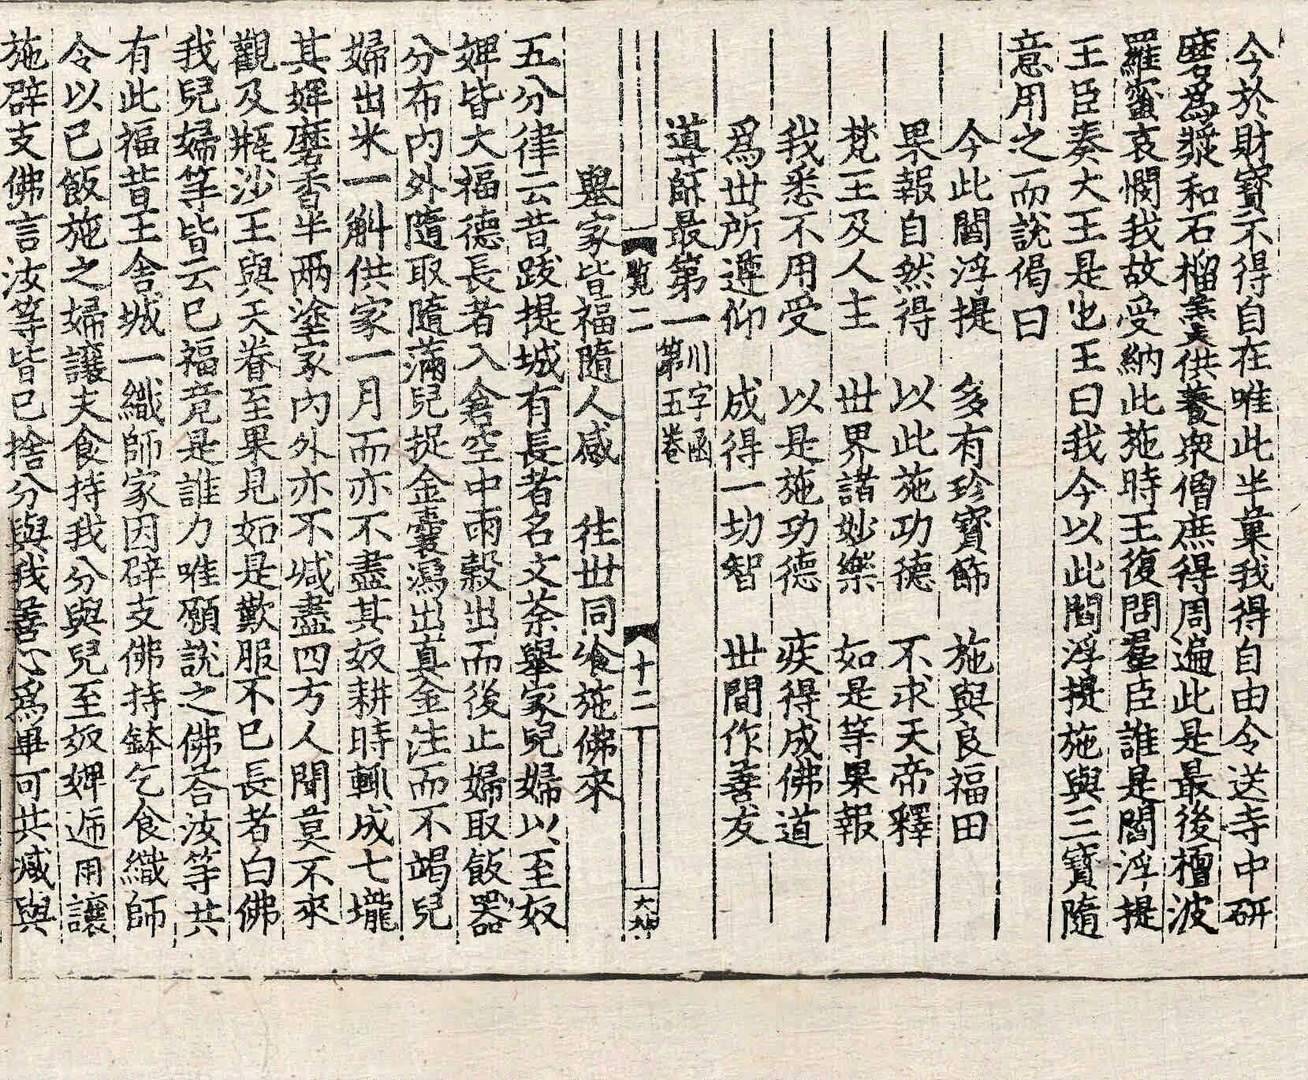 今於財寶不得自在唯此半菓我得自由令送寺中研
磨爲漿和石榴羹供養衆僧庶得周遍此是最後檀波
羅蜜哀憫我故受納此施時王復問羣臣誰是閻浮提
王臣奏大王是也王曰我今以此閻浮提施與三寶隨
意用之而說偈曰
今此閻浮提　多有珍寶飾　施與良福田
果報自然得　以此施功德　不求天帝釋
梵王及人主　世界諸妙樂　如是等果報
我悉不用受　以是施功德　疾得成佛道
爲世所遵仰　成得一切智　世間作善友
導師最第一
川字函
第五卷
覧二　十二
擧家皆福隨人感　往世同飡施佛來
五分律云昔跋提城有長者名文荼舉家兒婦以至奴
婢皆大福德長者入倉空中雨穀出而後止婦取飯器
分布內外隨取隨滿兒捉金囊瀉出真金注而不竭兒
婦出米一斛供家一月而亦不盡其奴耕時輒成七壠
其婢磨香半兩塗家內外亦不減盡四方人聞莫不來
觀及甁沙王與天眷至果見如是歎服不已長者白佛
我兒婦等皆云已福竟是誰力唯願說之佛荅汝等共
有此福昔王舍城一織師家因辟支佛持鉢乞食織師
令以已飯施之婦讓夫食持我分與兒至奴婢逓用讓
施辟支佛言汝等皆已捨分與我善心爲畢可共減與